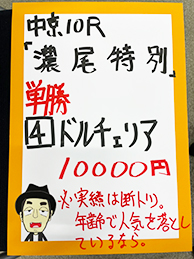 中京10R
「濃尾特別」
単勝
4ドルチェリア
10000円
※実績は断トツ。
年齢で人気を落とし
ているなら。